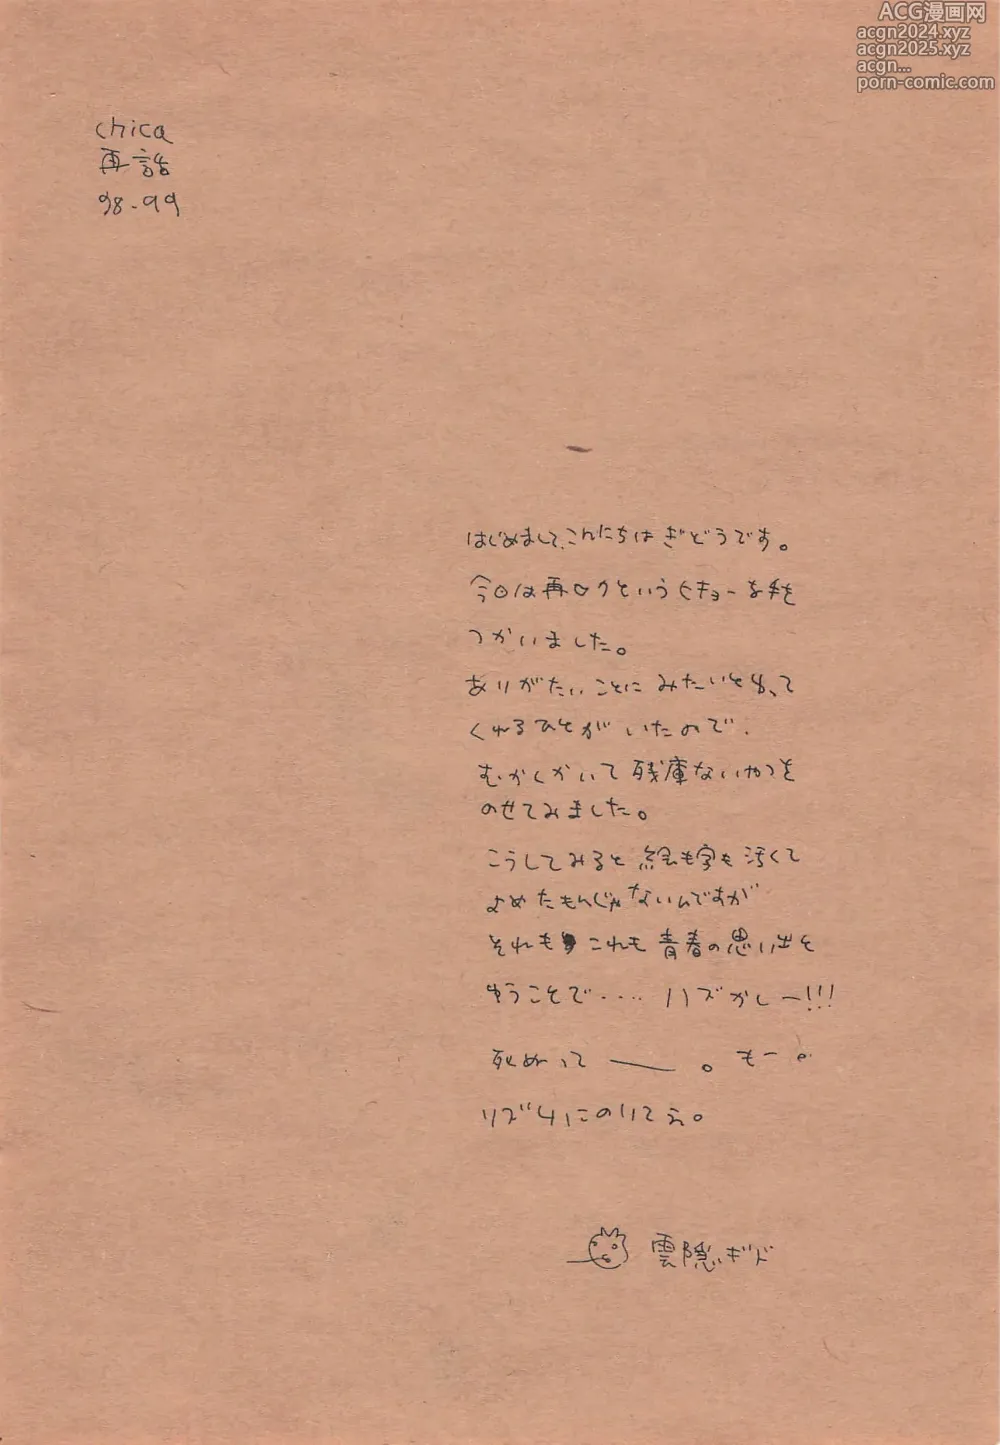 ACG漫画网
acgn2024.xyz
acgn2025.xyz
acgn...
porn-comic.com
chica
再話
98-99
はじめまして、こんにちは ぎどうです。
今日は再ロクというヒキョーな手を
つかいました。
ありがたいことに みたいと
くれるひとが いたので、
むかしかいて 残庫ないやつを
のせてみました。
こうしてみると 絵も字も 汚くて
よめたもんじゃないんですが
それも これも 青春の思い出と
ゆうことで‥‥ ハズかしー!!!
死ぬって ー。もー。
リズムにのりてえ。
雲隠ギド